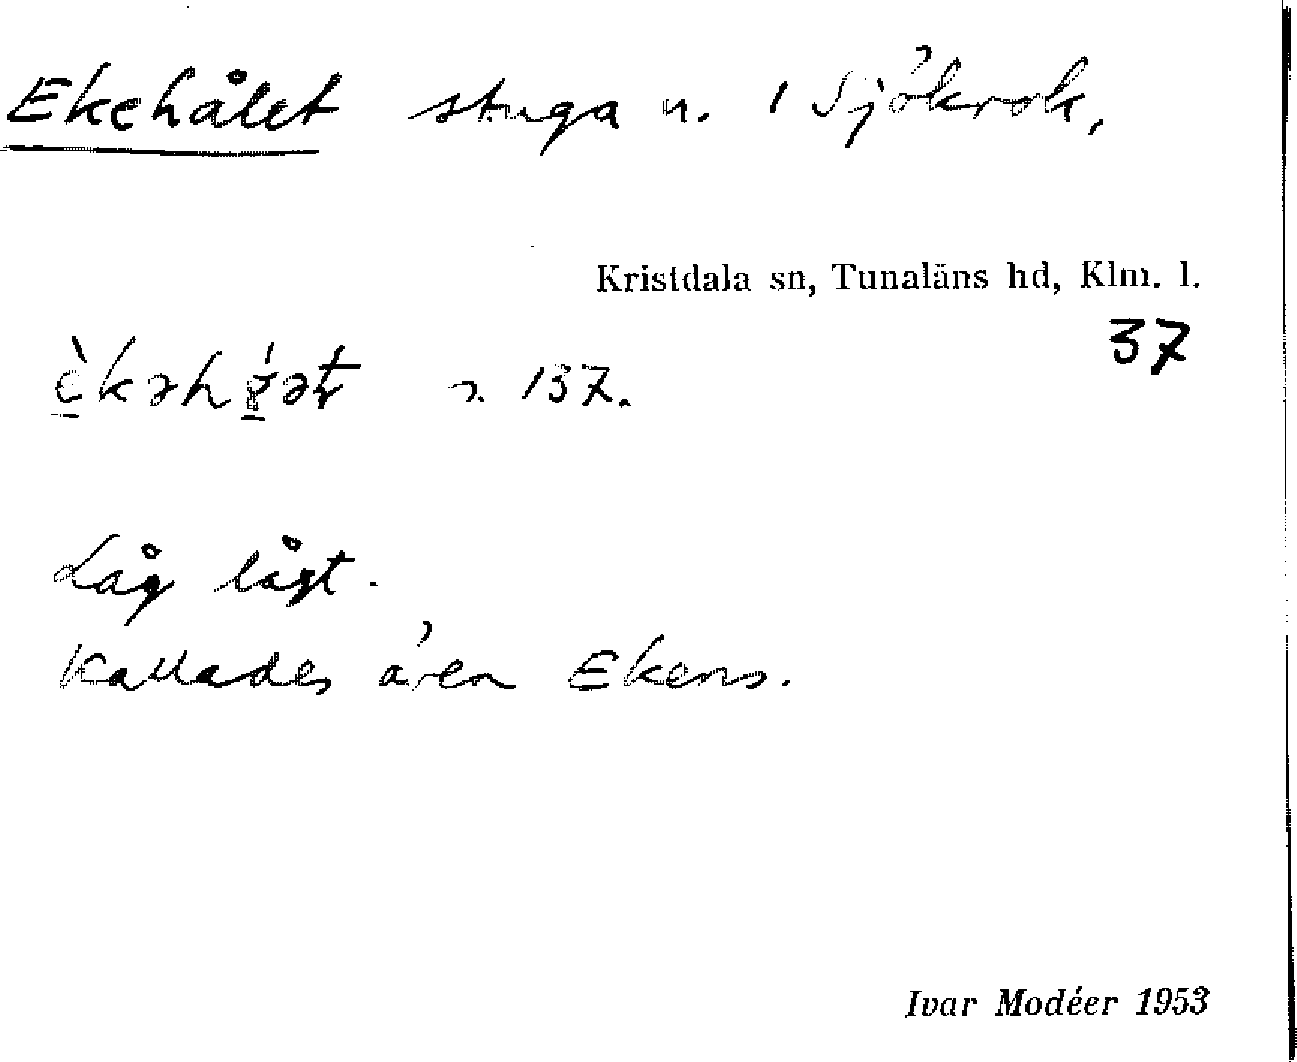 Ekehålet stuga u. i Sjökrok,
Kristdala sn, Tunaläns hd, Klm. l.
37
137.
Låg lågt.
Kallades även Ekens.
Ivar Modéer 1953